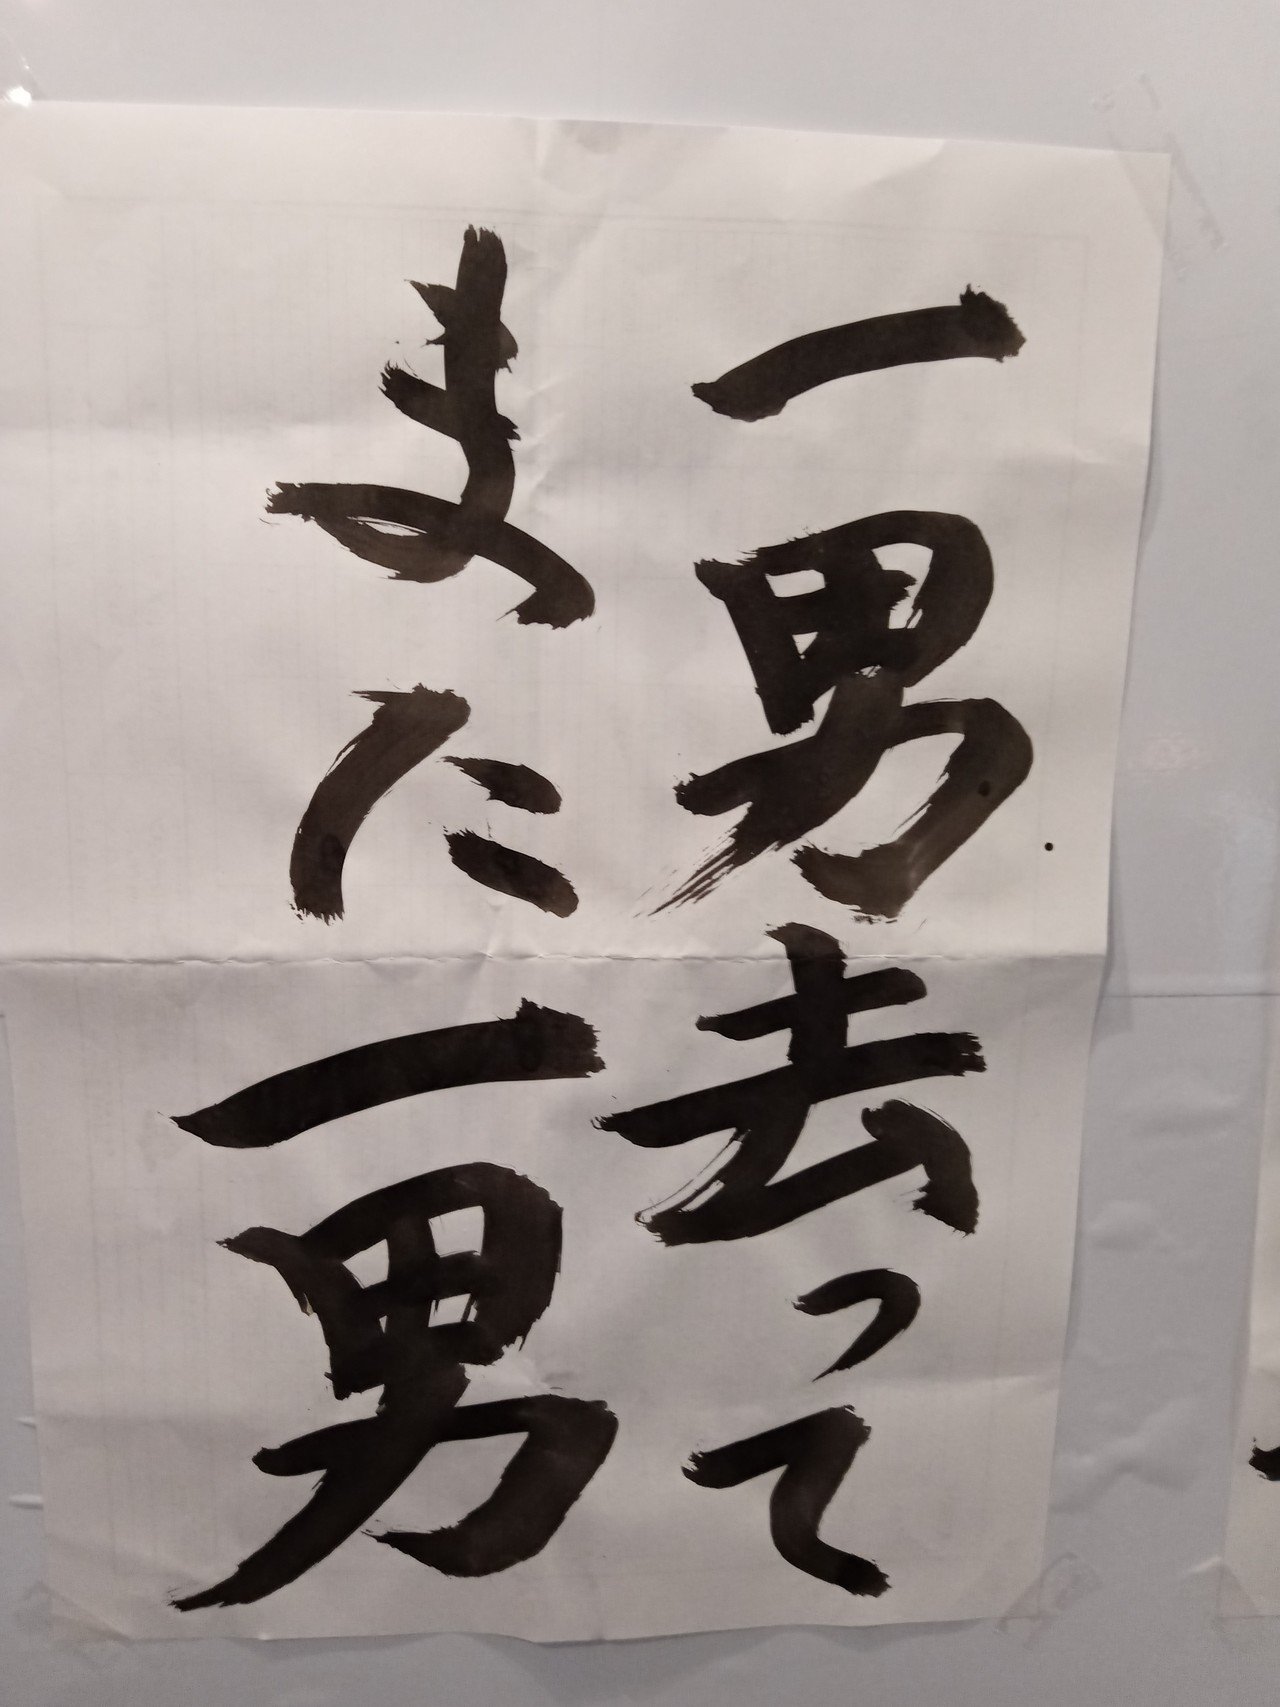 一男去って
また一男